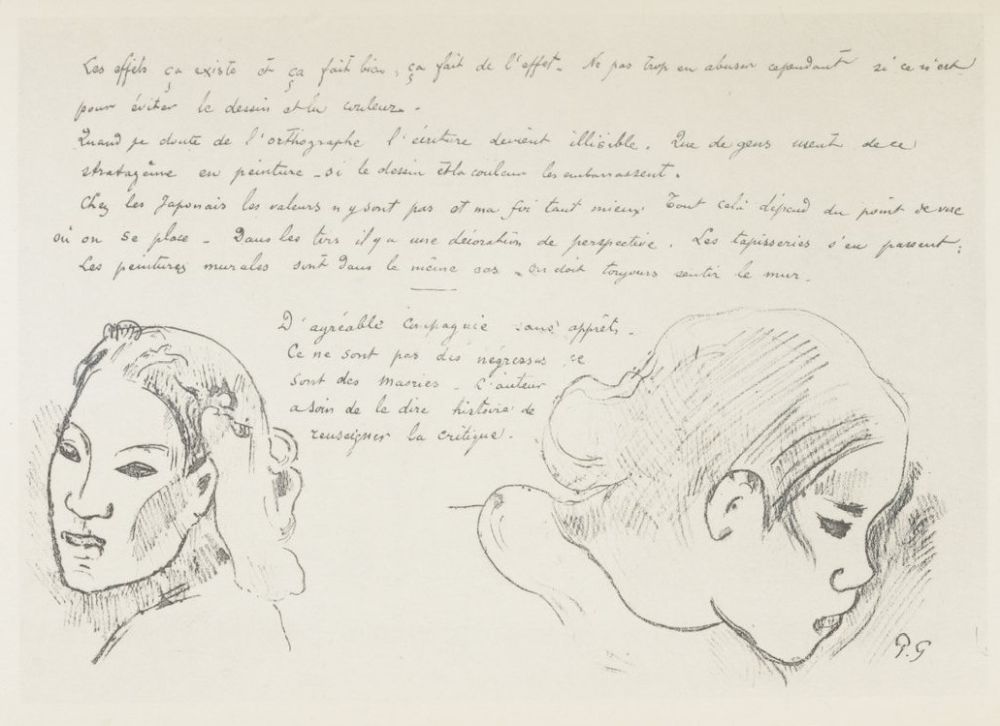 Les effets ça existe et ça fait bien, ça fait de l'effet. Ne pas trop en abuser cependant si ce n'est
pour éviter le dessin et la couleur.
Quand je doute de l'orthographe l'écriture devient illisible. Que de gens usent de ce
stratagème en peinture - si le dessin et la couleur les embarrassent.
Chez les Japonais les valeurs n'y sont pas et ma foi tant mieux Tout cela dépend du point de vue
où on se place - Dans les tirs il y a une décoration de perspective. Les tapisseries s'en passent:
Les peintures murales sont dans le même cas - on doit toujours sentir le mur.
D'agréable Compagnie sans apprêts.
Ce ne sont pas des négresses ce
sont des maories - L'auteur
a soin de le dire histoire de
renseigner la critique.
P.G